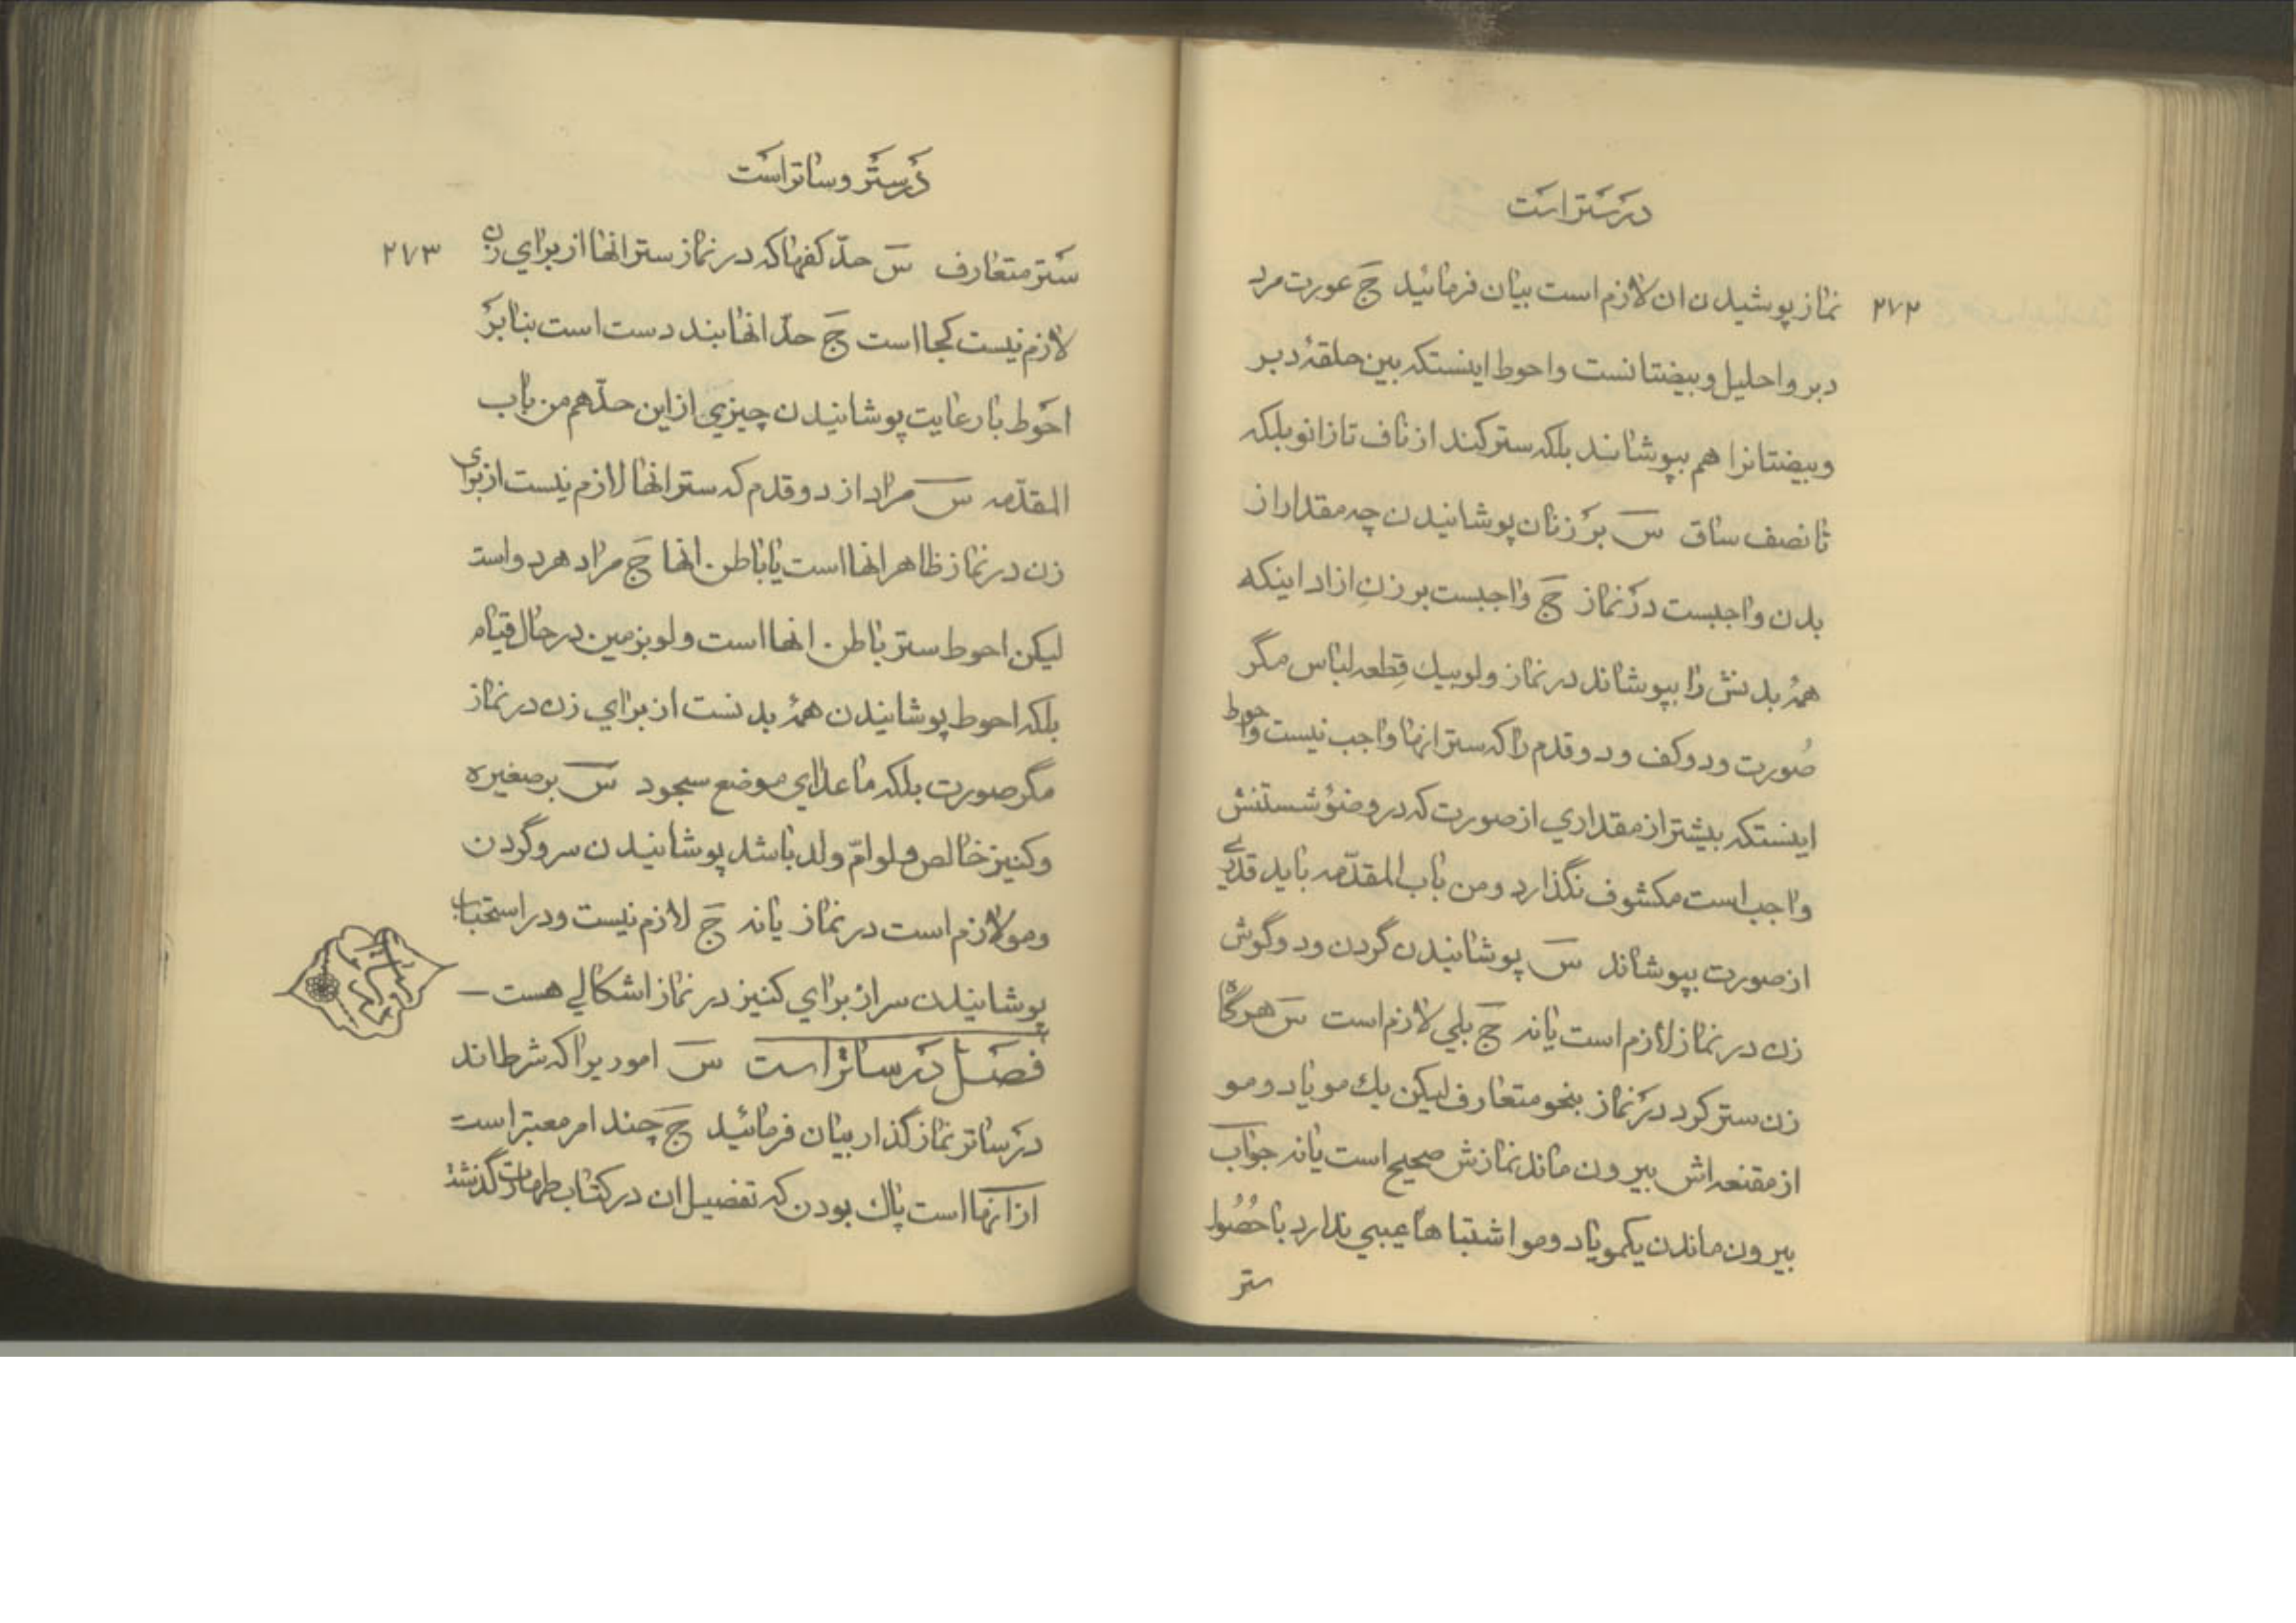 در ستر است
۲۷۲
نماز پوشیدن ان لازم است بیان فرمائید ج عورت مرد
دبر و احلیل و بیضتانست و احوط اینستکه بین حلقهٔ دبر
و بیضتانرا هم بپوشاند بلکه ستر کند از ناف تا زانو بلکه
تا نصف ساق س بر زنان پوشانیدن چه مقدار از
بدن واجبست در نماز ج واجبست بر زن ازاد اینکه
همهٔ بدنش را بپوشاند در نماز ولو بیك قطعه لباس مگر
صورت و دو کف و دو قدم را که ستر انها واجب نیست و احوط
اینستکه بیشتر از مقداري از صورت که در وضوُ شستنش
واجب است مکشوف نگذارد و من باب المقدّمه باید قدری
از صورت بپوشاند س پوشانیدن گردن و دو گوش
زن در نماز لازم است یا نه ج بلي لازم است س هر گاه
زن ستر کرد در نماز بنحو متعارف لیکن یك مو یا دو مو
از مقنعه اش بیرون ماند نمازش صحیح است یا نه جواب
بیرون ماندن یکمو یا دو مو اشتباها عیبي ندارد با حُصُول
ستر
در ستر و ساتر است
۲۷۳
ستر متعارف س حدّ کفها که در نماز ستر انها از براي زن
لازم نیست کجا است ج حدّ انها بند دست است بنابر
احوط با رعایت پوشانیدن چیزي از این حدّ هم من باب
المقدّمه س مراد از دو قدم که ستر انها لازم نیست از برای
زن در نماز ظاهر انها است یا باطن انها ج مراد هر دو است
لیکن احوط ستر باطن انها است ولو بزمین در حال قیام
بلکه احوط پوشانیدن همهٔ بدنست از براي زن در نماز
مگر صورت بلکه ما عداي موضع سجود س بر صغیره
و کنیز خالص ولو امّ ولد باشد پوشانیدن سر و گردن
و مو لازم است در نماز یا نه ج لازم نیست و در استحباب
پوشانیدن سر از براي کنیز در نماز اشکالي هست
فصل در ساتر است س اموریرا که شرط اند
در ساتر نماز گذار بیان فرمائید ج چند امر معتبر است
از انها است پاك بودن که تفصیل ان در کتاب طهارت گذشت